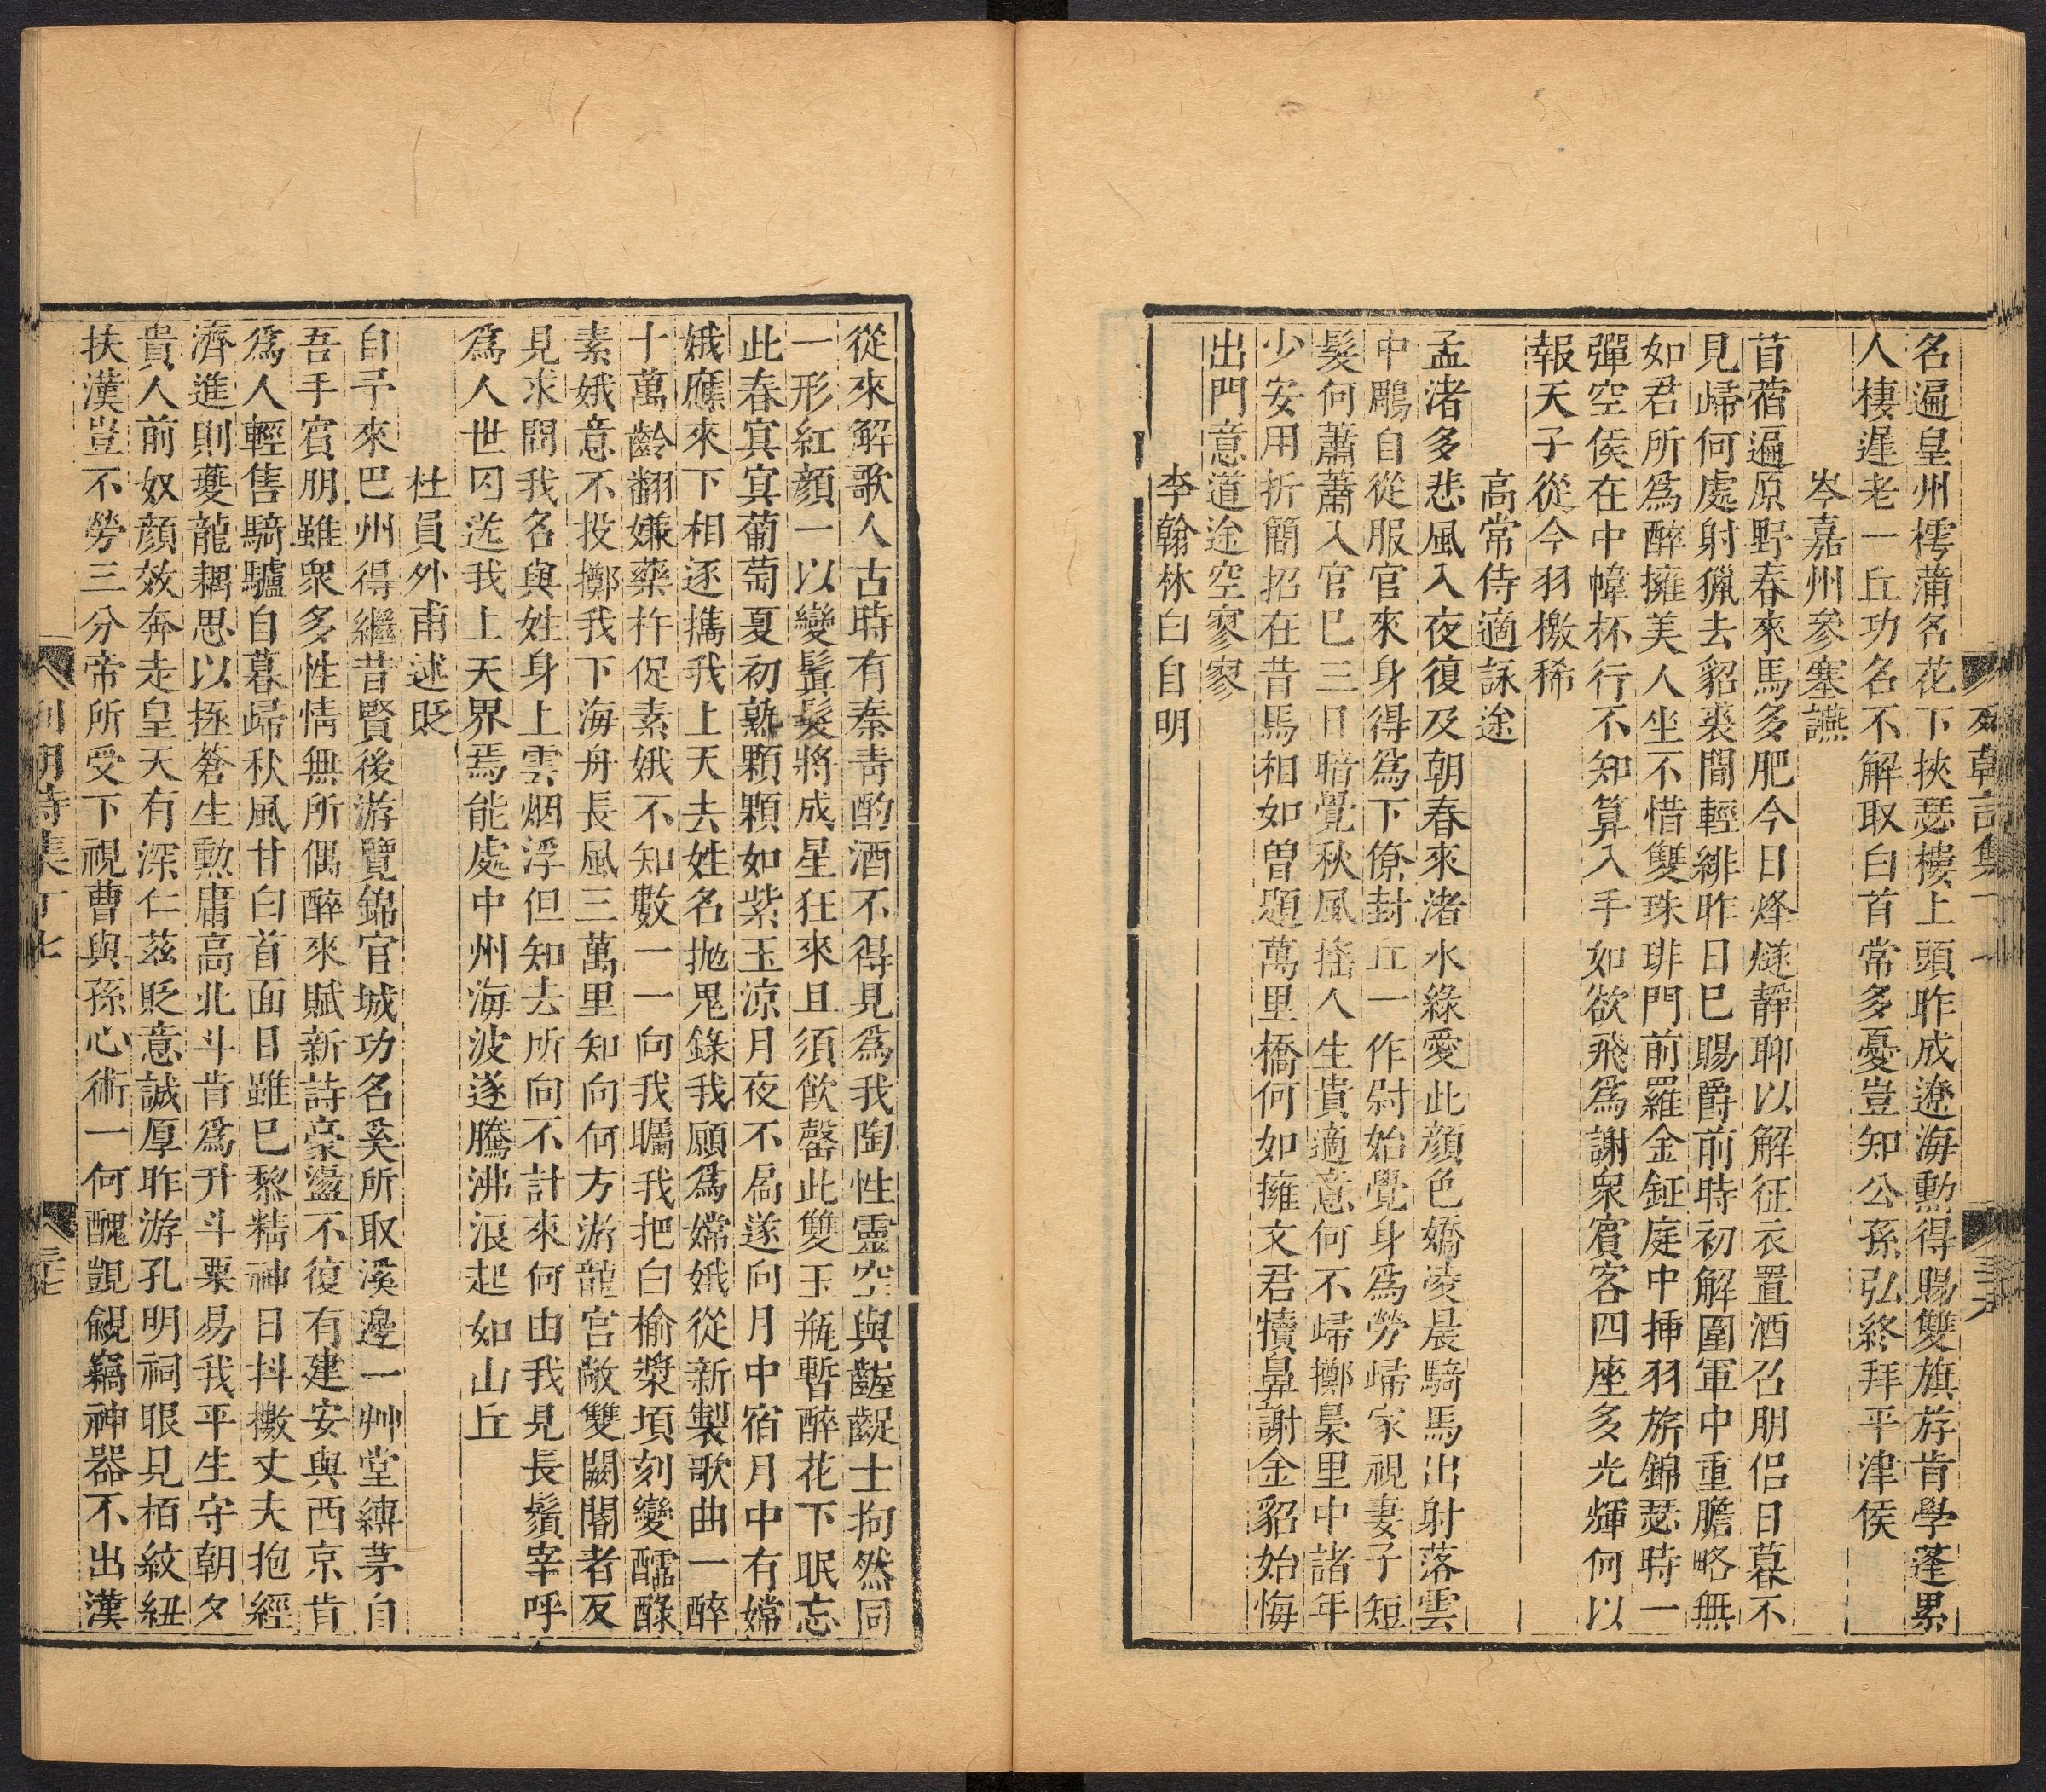 名遍皇州樗蒲名花下挾瑟樓上頭昨成遼海勲得賜雙旗斿肯學蓬累
人棲遲老一丘功名不解取白首常多憂豈知公孫弘終拜平津侯
岑嘉州參塞讌
苜蓿遍原野春來馬多肥今日烽燧靜聊以解征衣置酒召朋侶日暮不
見歸何處射獵去貂裘間輕緋昨日巳賜爵前時初解圍軍中重膽略無
如君所爲醉擁美人坐不惜雙珠琲門前羅金鉦庭中挿羽旂錦瑟時一
彈空侯在中幃杯行不知算入手如欲飛爲謝衆賓客四座多光輝何以
報天子從今羽檄稀
高常侍適詠途
孟渚多悲風入夜復及朝春來渚水綠愛此顔色嬌凌晨騎馬出射落雲
中鵰自從服官來身得爲下僚封丘一作尉始覺身爲勞歸家視妻子短
髮何蕭蕭入官巳三日暗覺秋風揺人生貴適意何不歸擲梟里中諸年
少安用折簡招在昔馬相如曽題萬里橋何如擁文君犢鼻謝金貂始悔
出門意道途空寥寥
李翰林白自明
從來解歌人古時有秦靑酌酒不得見爲我陶性靈空與齷齪士拘然同
一形紅顔一以變鬂髮將成星狂來且須飮罄此雙玉瓶暫醉花下眠忘
此春冥冥葡萄夏初熟顆顆如紫玉凉月夜不扃遂向月中宿月中有嫦
娥應來下相逐攜我上天去姓名抛鬼錄我願爲嫦娥從新製歌曲一醉
十萬齡翻嫌藥杵促素娥不知數一一向我矚我把白榆漿頃刻變醽醁
素娥意不投擲我下海舟長風三萬里知向何方游龍宮敞雙闕閽者反
見求問我名與姓身上雲烟浮但知去所向不計來何由我見長鬚宰呼
爲人世囚送我上天界焉能處中州海波遂騰沸浪起如山丘
杜員外甫述貶
自予來巴州得繼昔賢後游覽錦官城功名奚所取溪邊一艸堂縛茅自
吾手賓朋雖衆多性情無所偶醉來賦新詩豪盪不復有建安與西京肯
爲人輕售騎驢自暮歸秋風甘白首面目雖巳黎精神日抖擻丈夫抱經
濟進則夔龍耦思以拯蒼生勲庸高北斗肯爲升斗粟易我平生守朝夕
貴人前奴顔效奔走皇天有深仁茲貶意誠厚昨游孔明祠眼見栢紋紐
扶漢豈不勞三分帝所受下視曹與孫心術一何醜覬覦竊神器不出漢